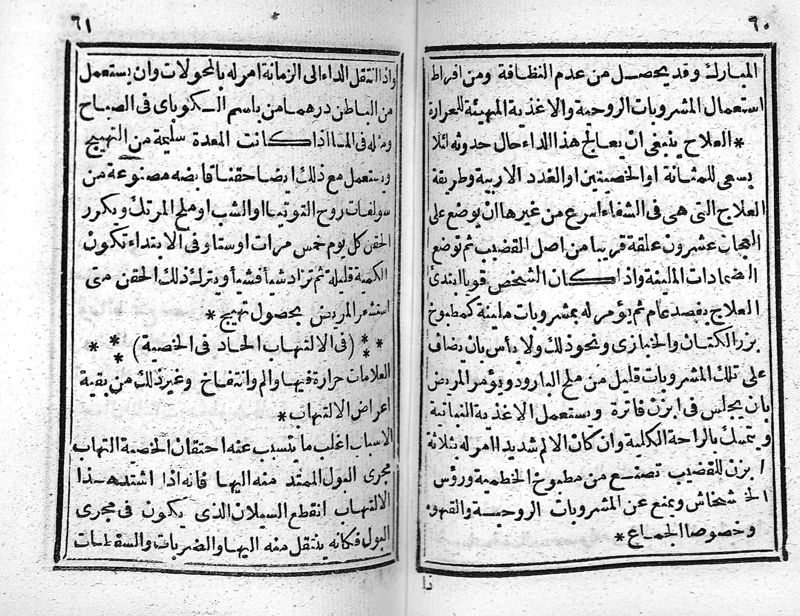 ٦٠
المبارك وقد يحصل من عدم النظافة ومن افراط
استعمال المشروبات الروحية والاغذية المهيئة للحرارة
* العلاج ينبغى ان يعالج هذا الداء حال حدوثه لئلا
يسعى للمثانة او الخصيتين او الغدد الاربية وطريقة
العلاج التى هى فى الشفاء اسرع من غيرها ان يوضع على
العجان عشرون علقة قريبا من اصل القضيب ثم توضع
الضمادات الملينة واذا كان الشخص قويا ابتدئ
العلاج بفصد عام ثم يؤمر له بمشروبات ملينة كمطبوخ
بزر الكتان والخبازى ونحو ذلك ولا بأس بان يضاف
على تلك المشروبات قليل من ملح البارود ويؤمر المريض
بان يجلس فى ابزن فاترة ويستعمل الاغذية النباتية
ويتمسك بالراحة الكلية وان كان الالم شديدا امر له بثلاثة
ابزن للقضيب تصنع من مطبوخ الخطمية ورؤس
الخشخاش ويمنع عن المشروبات الروحية والقهوه
وخصوصا الجماع *
ذا
٦١
واذا انتقل الداء الى الزمانة امر له بالمحولات وان يستعمل
من الباطن درهما من باسم الكوباى فى الصباح
ومثله فى المسا اذا كانت المعدة سليمة من التهيج
ويستعمل مع ذلك ايضا حقنا قابضه مصنوعة من
سولفات روح التوتيا او الشب او ملح المرتك ويكرر
الحقن كل يوم خمس مرات او ستا وفى الابتداء تكون
الكمية قليلة ثم تزاد شيأ فشيأ ويترك ذلك الحقن متى
استشعر المريض بحصول تهيج *
* * * (فى الالتهاب الحاد فى الخصية) * * *
العلامات حرارة فيها والم وانتفاخ وغير ذلك من بقية
اعراض الالتهاب *
الاسباب اغلب ما يتسبب عنه احتقان الخصية التهاب
مجرى البول الممتد منه اليها فانه اذا اشتد هذا
الالتهاب انقطع السيلان الذى يكون فى مجرى
البول فكانه ينتقل منه اليها والضربات والسقطات